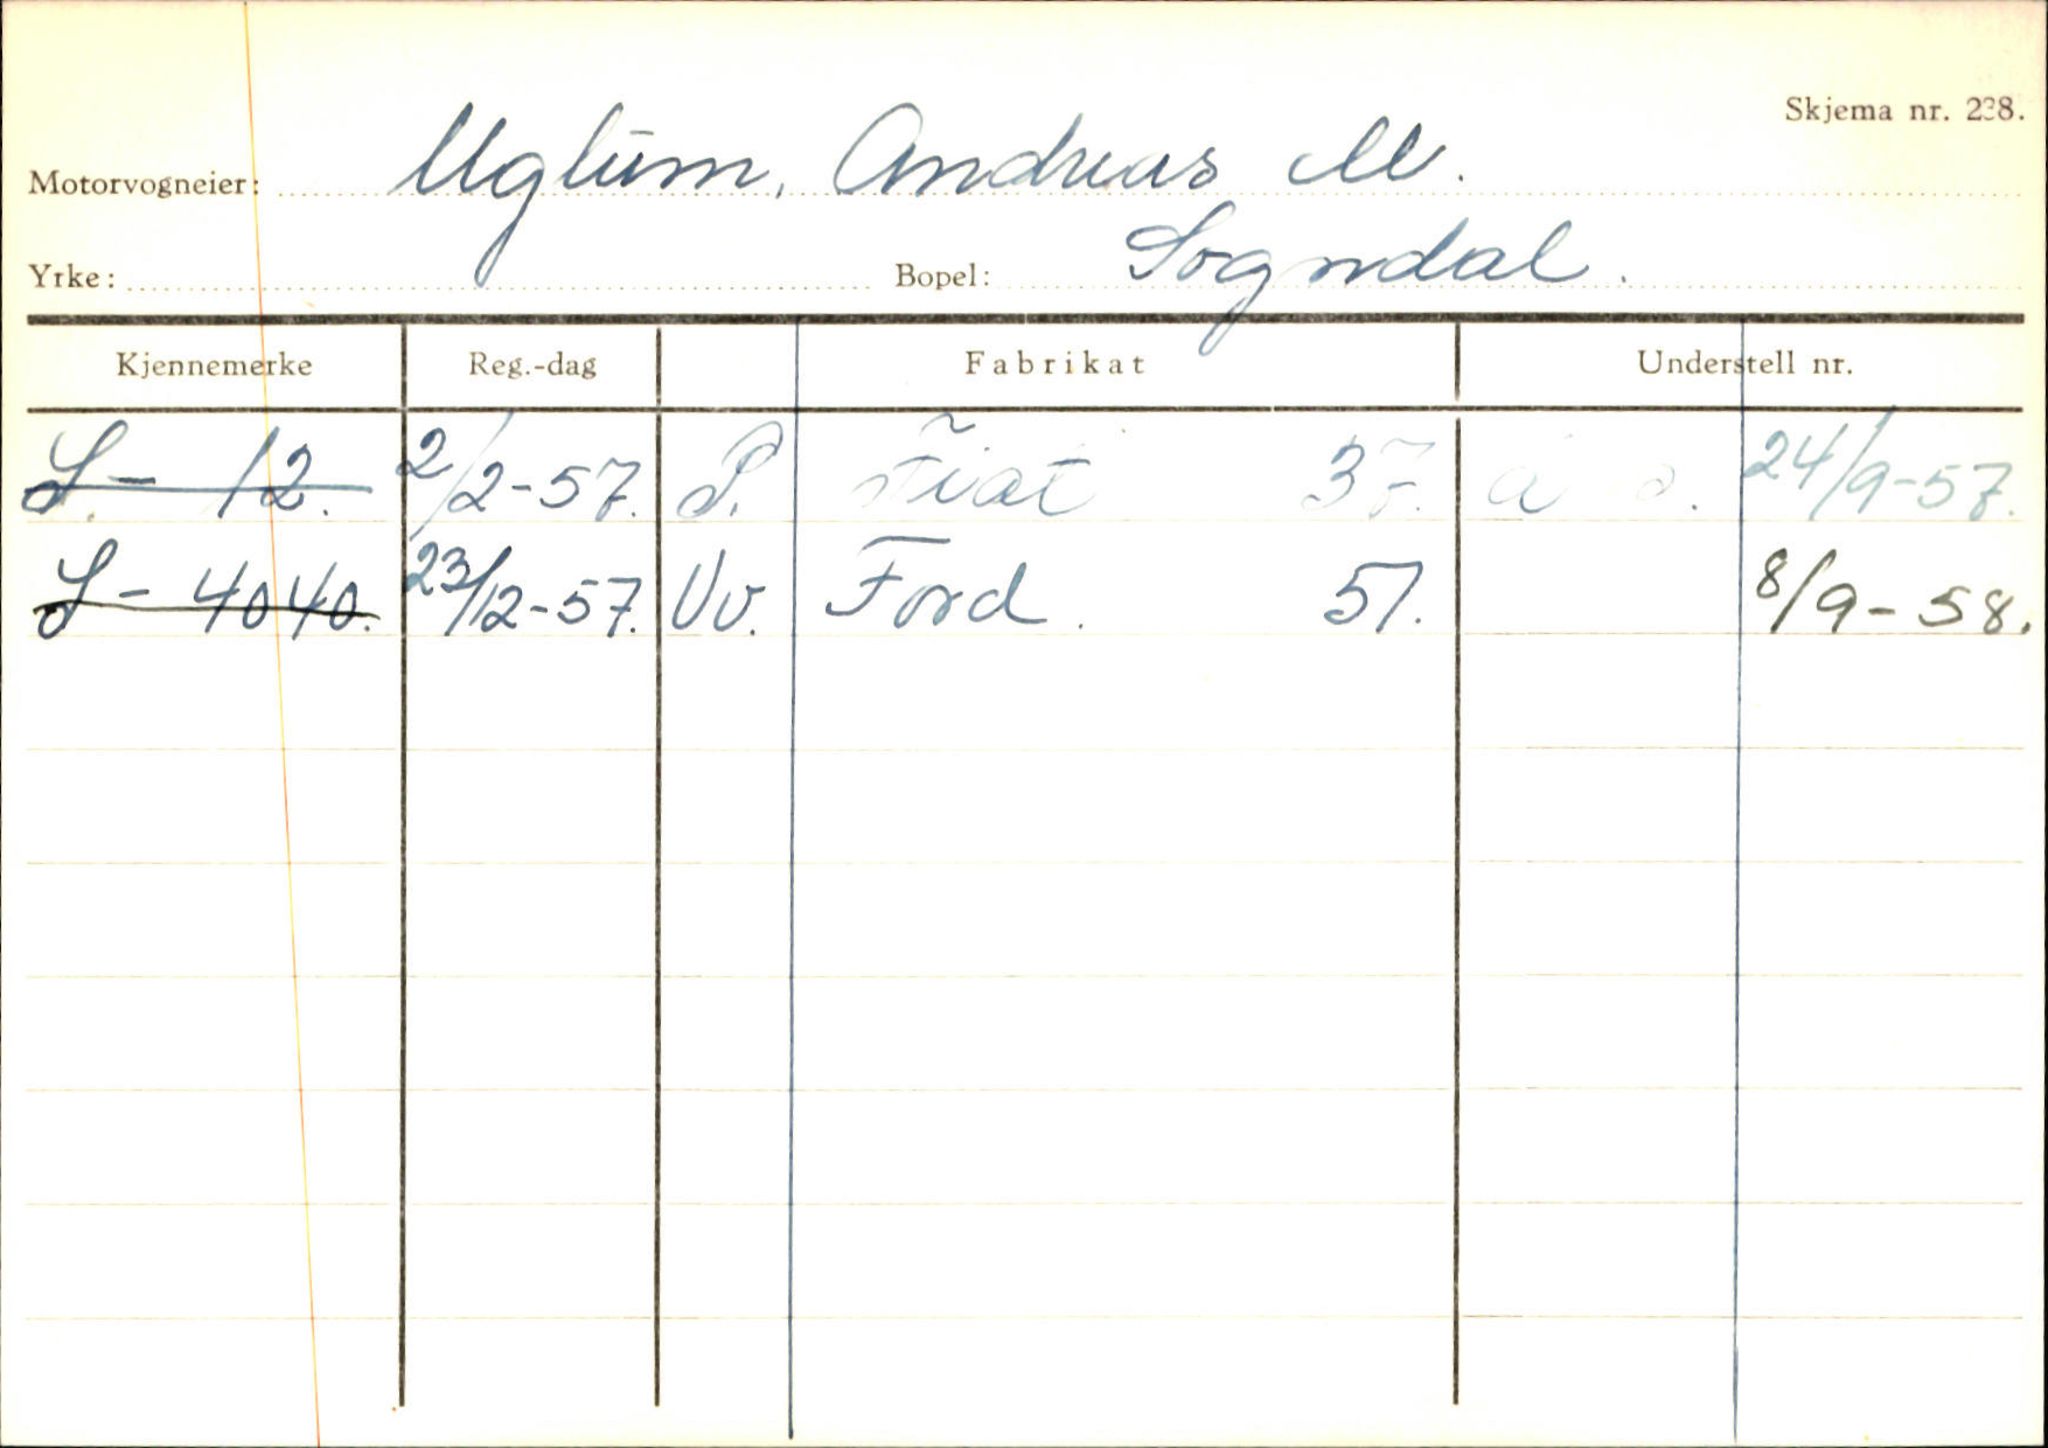 Skjema nr. 238.
Motorvogneier: Uglum, Andreas M.
Yrke: Bopel: Sogndal.
Kjennemerke Reg.-dag Fabrikat Understell nr.
S- 12. 2/2-57. P. Fiat 37. 24/9-57.
S- 4040. 23/12-57. Vv. Ford. 51. 8/9-58.